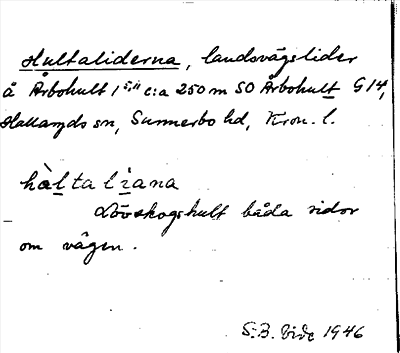 Hultaliderna, landsvägslider
å Årbohult 1 5,11 c:a 250 m SO Årbohult G 14,
Hallaryds sn, Sunnerbo hd, Kron. l.
hàltaliana
Lövskogshult båda sidor
om vägen.
S. B. Vide 1946